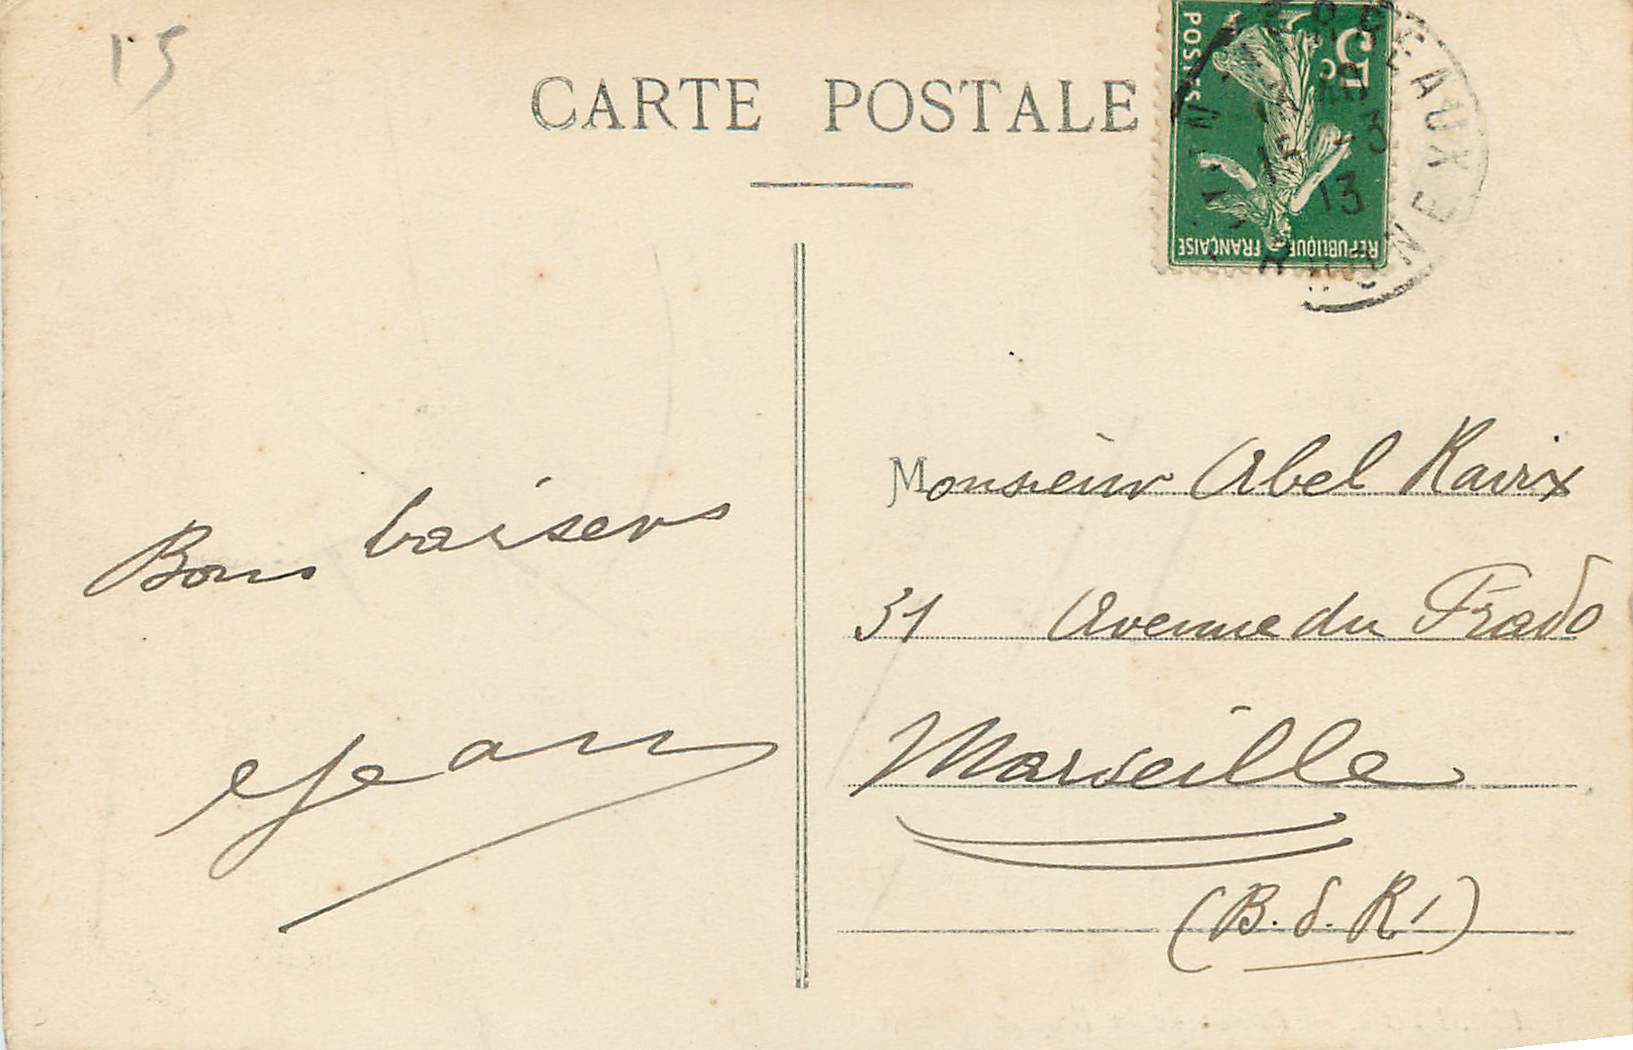 15
CARTE POSTALE
POSTES
5c
REPUBLIQUE FRANÇAISE
13
Bons baisers
Jean
Monsieur Abel Ravix
31 Avenue du Prado
Marseille
(B. d. R.)